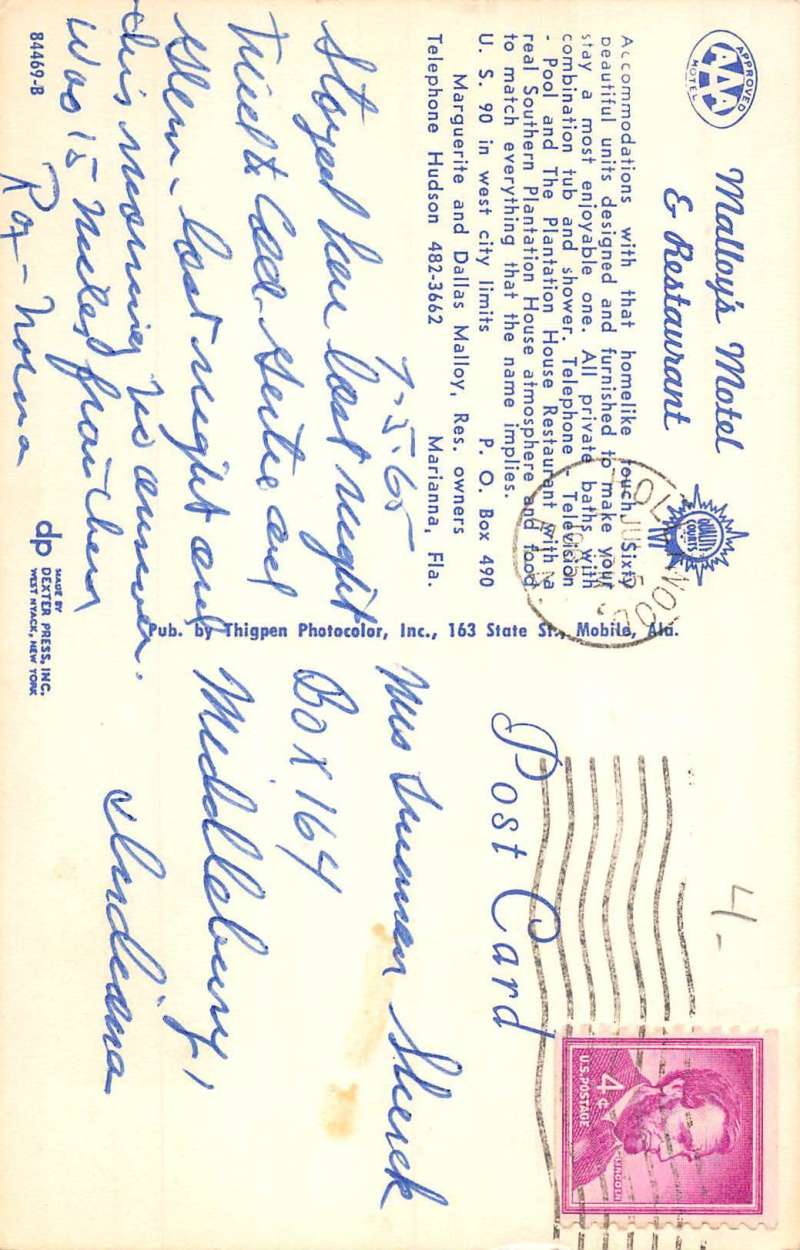 APPROVED
AAA
MOTEL
Malloy's Motel
& Restaurant
Accommodations with that homelike touch, Sixty
beautiful units designed and furnished to make your
stay a most enjoyable one. All private baths with
combination tub and shower. Telephone - Television
- Pool and The Plantation House Restaurant with a
real Southern Plantation House atmosphere and food
to match everything that the name implies.
U. S. 90 in west city limits P. O. Box 490
Marguerite and Dallas Malloy, Res. owners
Telephone Hudson 482-3662 Marianna, Fla.
QUALITY
COURTS
7-5-65
Stayed here last night
Tried to call Gertie and
Glen - last night and
this morning no answer.
Was 15 miles from them
Ray - Norma
84469-B
dp
MADE BY
DEXTER PRESS, INC.
WEST NYACK, NEW YORK
Pub. by Thigpen Photocolor, Inc., 163 State St., Mobile, Ala.
JUL 5
Post Card
4-
U.S. POSTAGE
4¢
LINCOLN
Mrs Sherck
Box 164
Middlebury,
Indiana